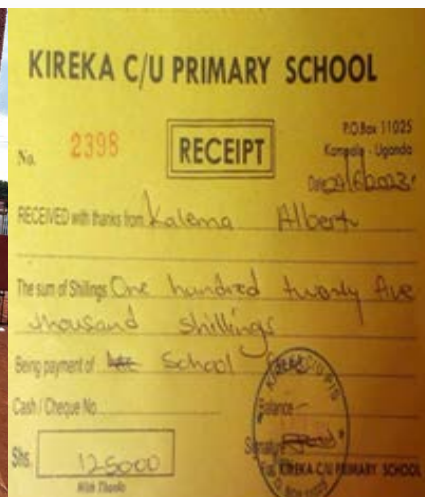 KIREKA C/U PRIMARY SCHOOL
P.O.Box 11025
Kampala - Uganda
No. 2398
RECEIPT
Date
RECEIVED with thanks from Kalema Albert
The sum of Shillings One hundred twenty five
thousand shillings
Being payment of School
Cash / Cheque No.
Balance
Shs. 125000
Signature
With Thanks
For: KIREKA C/U PRIMARY SCHOOL